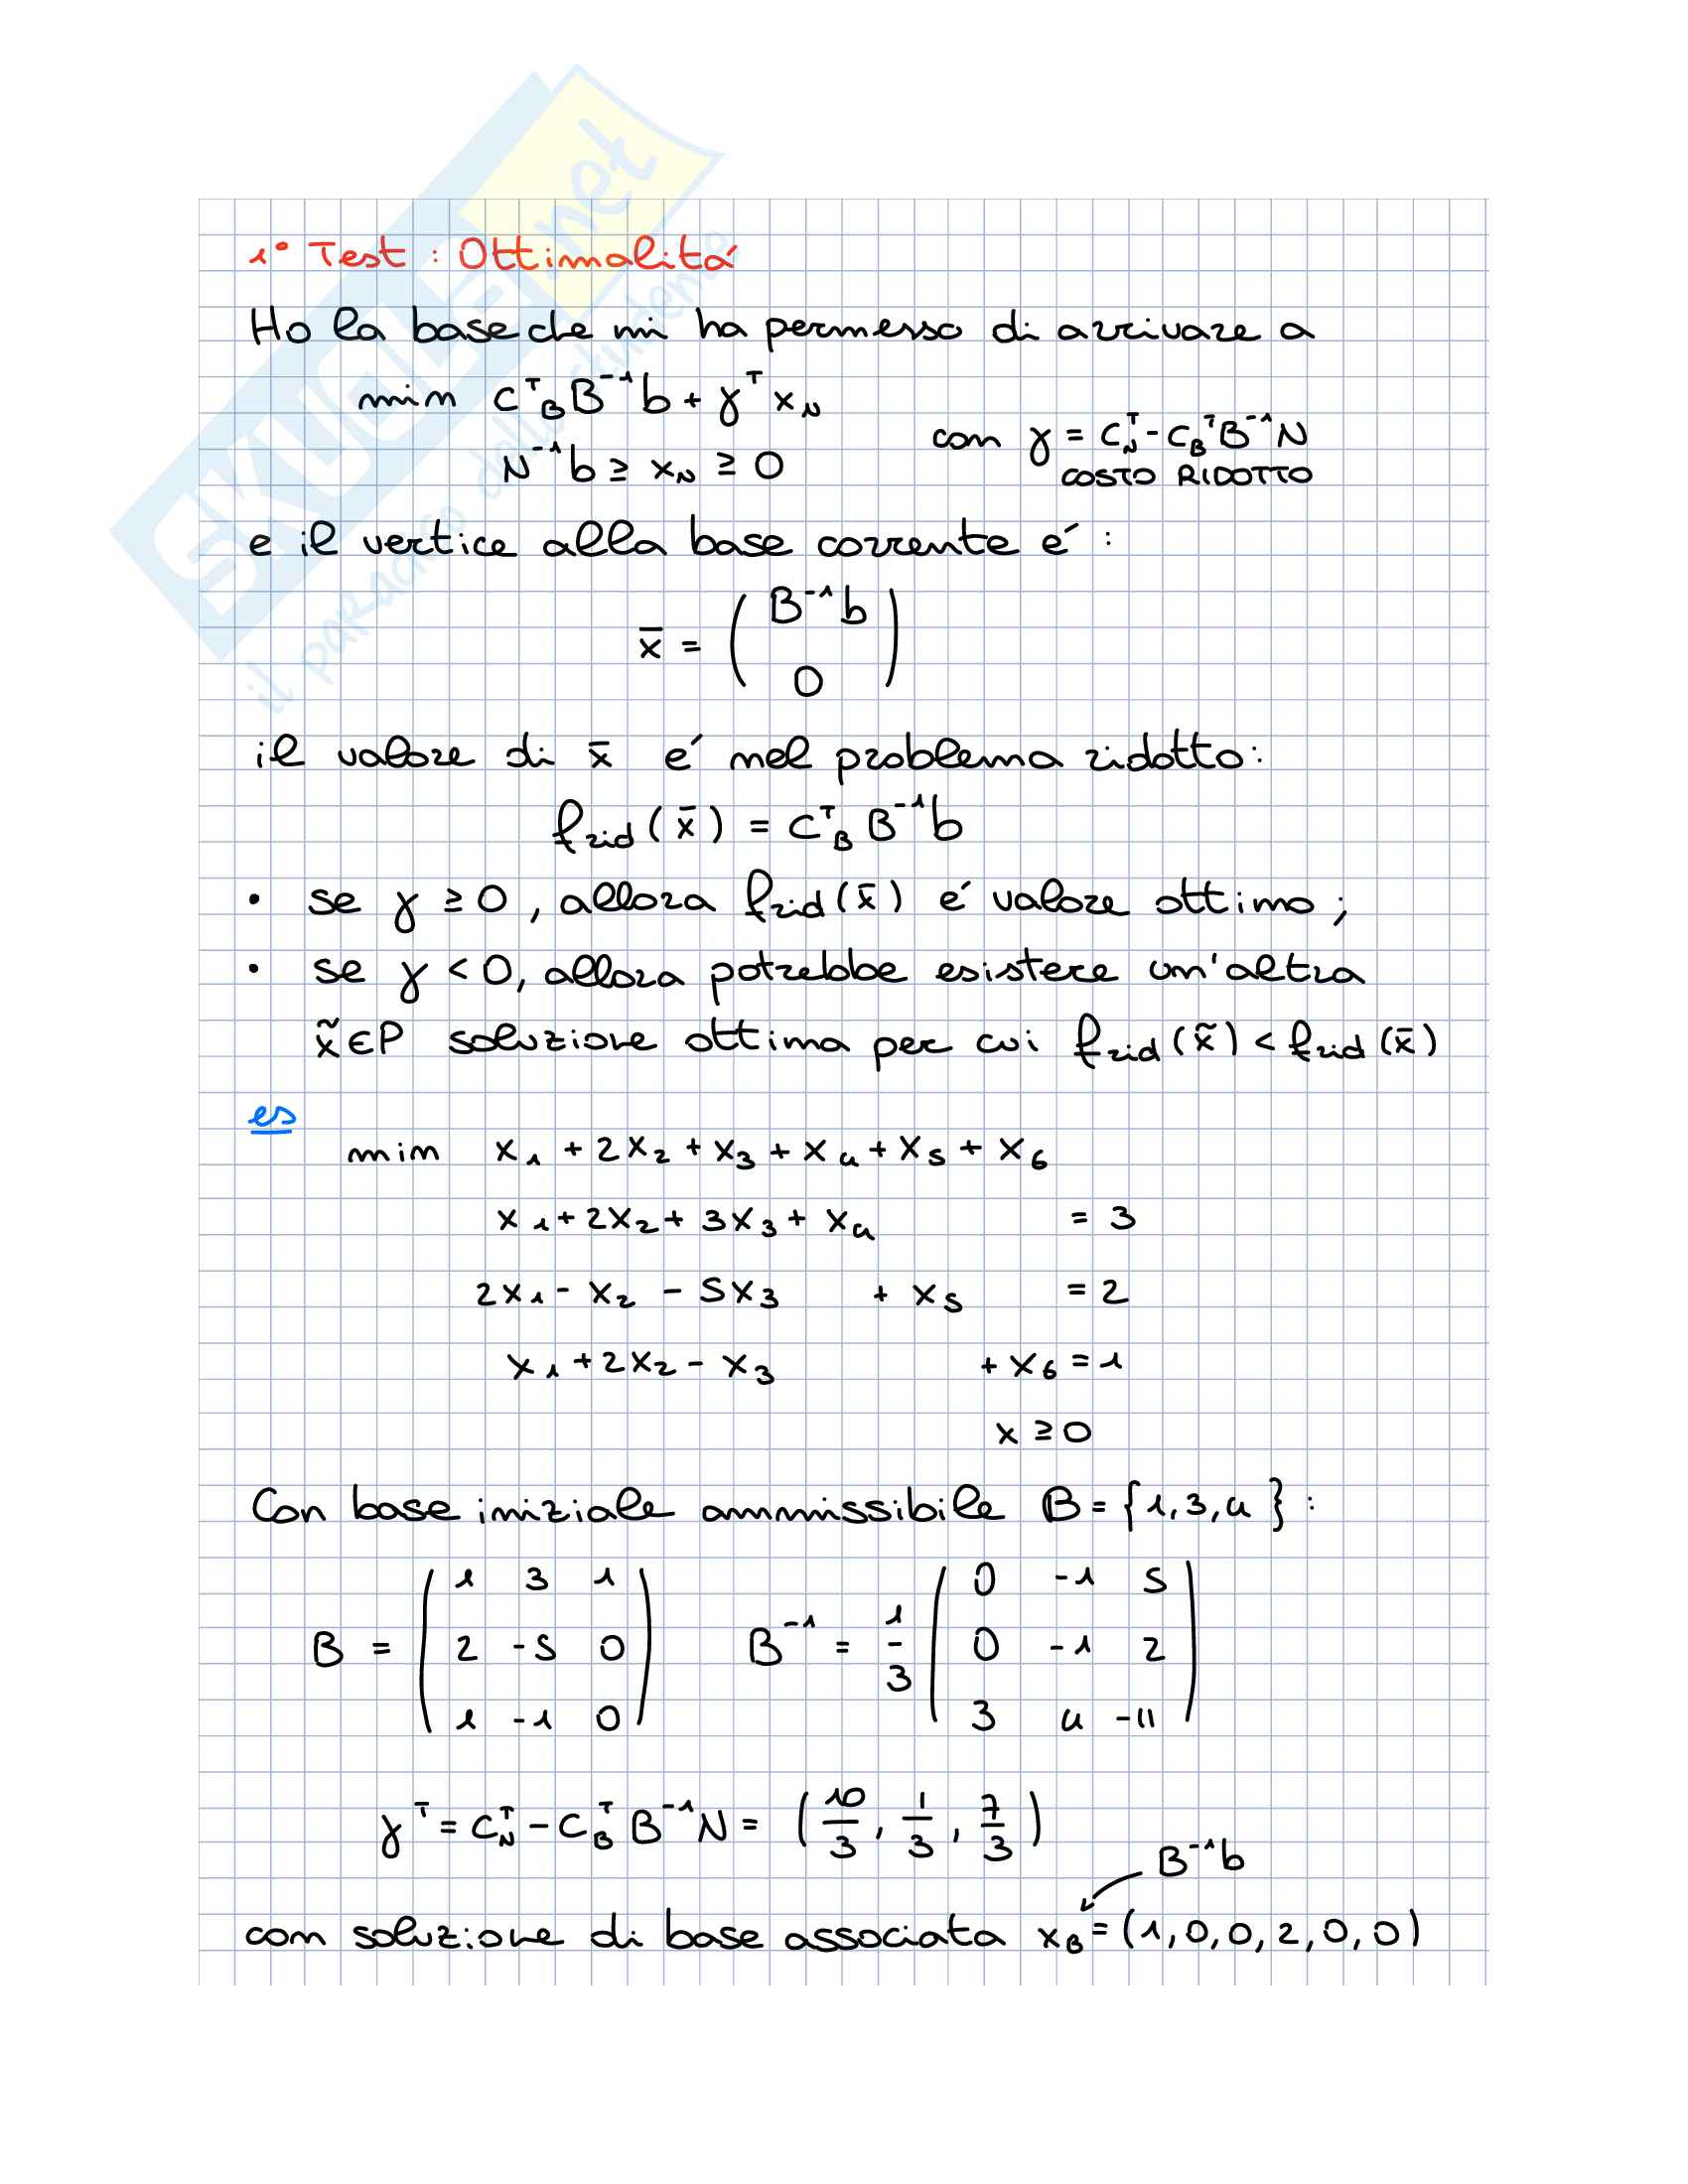 SKUOLA.net
il paradiso dello studente
1° Test : Ottimalitá
Ho la base che mi ha permesso di arrivare a
min C^T_B B^-1 b + γ^T x_N
N^-1 b ≥ x_N ≥ 0
con γ = C_N^T - C_B^T B^-1 N
COSTO RIDOTTO
e il vertice alla base corrente é :
x̄ = ( B^-1 b
0 )
il valore di x̄ é nel problema ridotto:
f_rid (x̄) = C^T_B B^-1 b
• se γ ≥ 0, allora f_rid (x̄) é valore ottimo ;
• se γ < 0, allora potrebbe esistere un'altra
x̃ ∈ P soluzione ottima per cui f_rid (x̃) < f_rid (x̄)
es
min x_1 + 2x_2 + x_3 + x_4 + x_5 + x_6
x_1 + 2x_2 + 3x_3 + x_4 = 3
2x_1 - x_2 - 5x_3 + x_5 = 2
x_1 + 2x_2 - x_3 + x_6 = 1
x ≥ 0
Con base iniziale ammissibile B = {1, 3, 4} :
B = ( 1 3 1 / 2 -5 0 / 1 -1 0 ) B^-1 = 1/3 ( 0 -1 5 / 0 -1 2 / 3 4 -11 )
γ^T = C_N^T - C_B^T B^-1 N = ( 10/3 , 1/3 , 7/3 )
B^-1 b
con soluzione di base associata x_B = (1, 0, 0, 2, 0, 0)